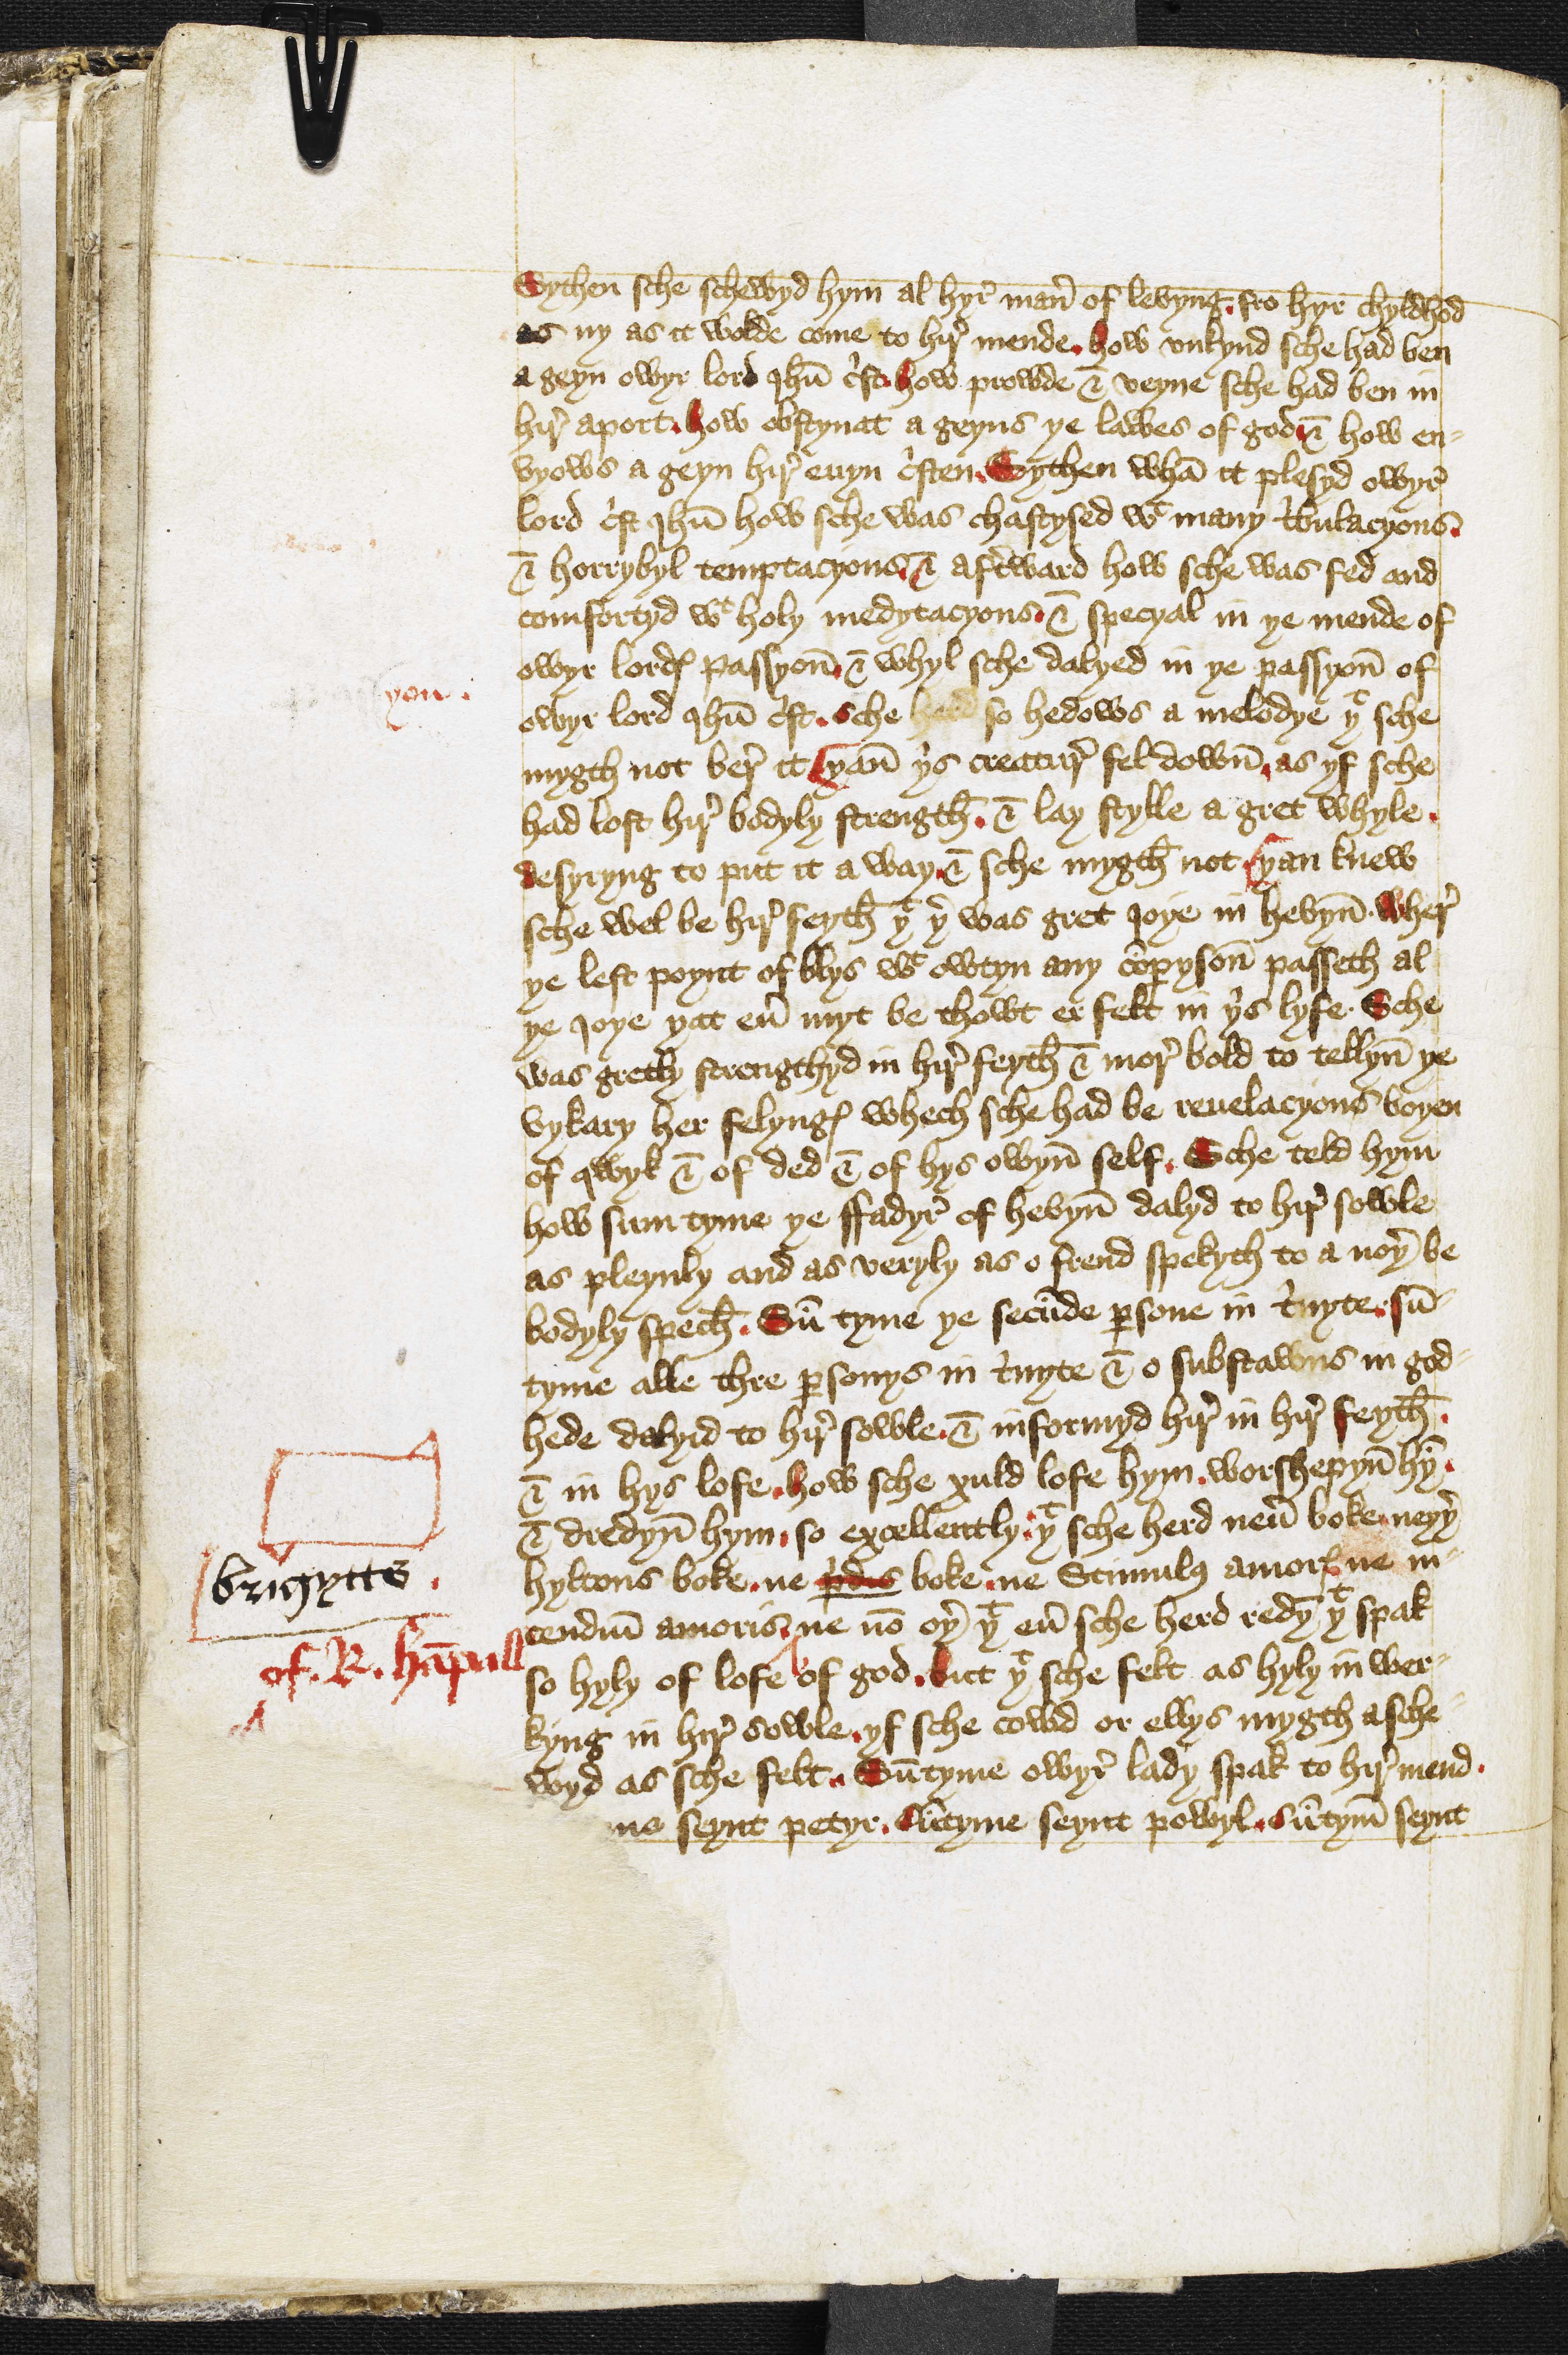 Sythen sche schewyd hym al hyr̛ man̛ of levyng. fro hyr chyldhod
as ny as it wolde come to hir̛ mende. how vnkynd sche had ben
a geyn owyr lord Ihū c̛st. how prowde & veyne sche had ben in
hir̛ aport. how obstynat a geyns ye lawes of god. & how en-
vyows a geyn hir̛ euyn c̛sten. Sythen whā it plesyd owyr̛
lord c̛st Ihū how sche was chastysed wᵗ many t̛bulacyons.
& horrybyl temptacyons. & aft̛ward how sche was fed and
comfortyd wᵗ holy medytacyons. & specyal in ye mende of
owyr lordꝭ passyon̄. & whyl sche dalyed in ye passyon̄ of
yon.
owyr lord Ihū c̛st. sche herd so hedows a melodye yᵗ sche
mygth not ber̛ it yan̄ y̛s creatur̛ fel down̄. as yf sche
had lost hir̛ bodyly strength̄. & lay stylle a gret whyle.
desyryng to put it a way. & sche mygth̄ not. yan knew
sche wel be hir̛ feyth̄ yᵗ y̛ was gret Ioye in hevyn̄. wher̛
ye lest poynt of blys wᵗ owtyn any cōpyson̄ passeth al
ye Ioye yat eư myt be thowt er felt in y̛s lyfe. Sche
was gretly strengthyd in hir̛ feyth̄ & mor̛ bold to tellyn̄ ye
vykary her felyngꝭ whech sche had be reuelacyons boyen
of qwyk & of ded & of hys owyn̄ self. Sche teld hym
how sum tyme ye ffadyr̛ of hevyn̄ dalyd to hir̛ sowle
as pleynly and as veryly as o frend spekyth to a noy̛ be
bodyly spech̄. Sū tyme ye secūde ꝑsone in t̛nyte. sū-
tyme alle thre ꝑsonys in t̛nyte & o substawns in god-
hede dalyid to hir̛ sowle. & informyd hir̛ in hir̛ feyth̄.
& in hys lofe. how sche xuld lofe hym. worshepyn̄ hȳ.
& dredyn̄ hym. so excellently. yᵗ sche herd neư boke. neyy̛
hyltons boke. ne p̛dis boke. ne Stimulꝰ amorꝭ. ne in-
brigytts.
cendiū amoris. ne nō oy̛ yᵗ eư sche herd redȳ yᵗ spak
of. R. hāpall
so hyly of lofe of god. but yᵗ sche felt as hyly in wer-
kyng in hir̛ sowle. yf sche cowd or ellys mygth a sche-
wyd as sche felt. Sūtyme owyr̛ lady spak to hir̛ mend.
me seynt petyr. Sūtyme seynt powyl. Sūtym̄ seynt